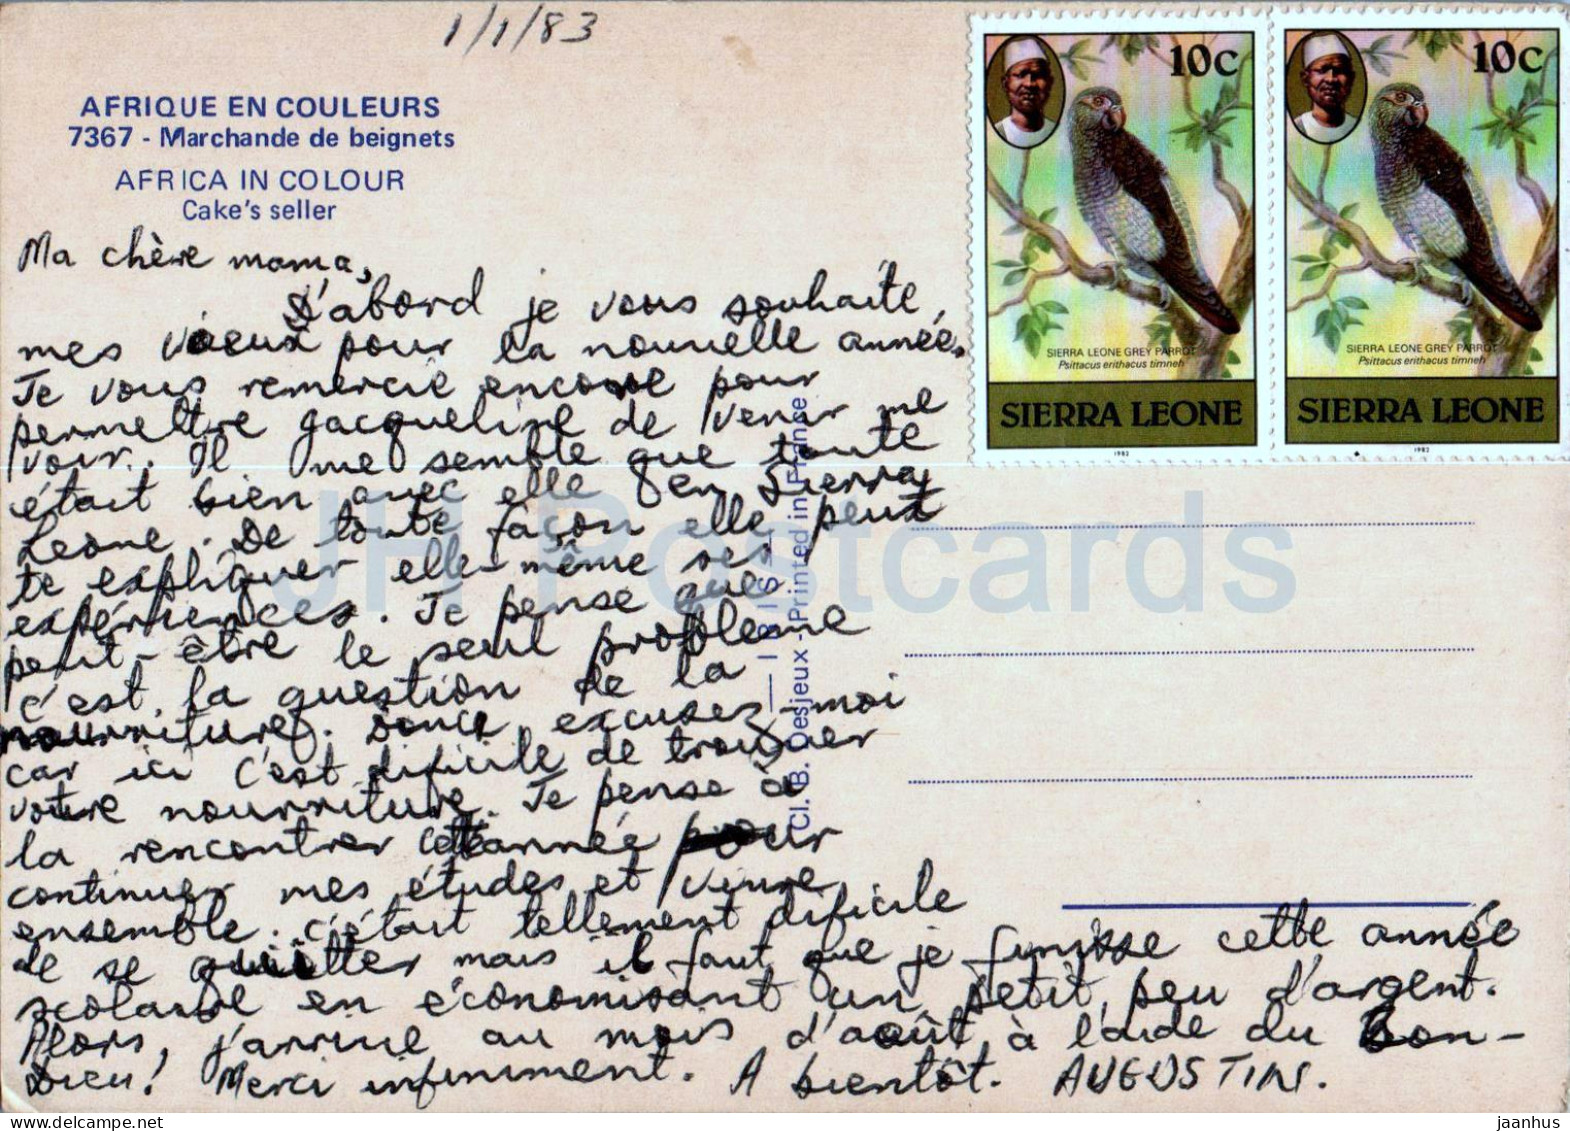 1/1/83
AFRIQUE EN COULEURS
7367 - Marchande de beignets
AFRICA IN COLOUR
Cake's seller
10c
SIERRA LEONE GREY PARROT
Psittacus erithacus timneh
SIERRA LEONE
1982
10c
SIERRA LEONE GREY PARROT
Psittacus erithacus timneh
SIERRA LEONE
1982
Ma chère mama,
D'abord je vous souhaite,
mes voeux pour la nouvelle année.
Je vous remercie encore pour
permettre Jacqueline de venir me
voir. Il me semble que toute
était bien avec elle en Sierra
Leone. De toute façon elle peut
te expliquer elle-même ses
expériences. Je pense que
peut-être le seul problème
c'est la question de la
nourriture. Donc excusez-moi
car ici c'est dificile de trouver
votre nourriture. Je pense à
la rencontrer cette année pour
continuer mes études et vivre
ensemble. C'était tellement dificile
de se quitter mais il faut que je finisse cette année
scolaire en économisant un petit peu d'argent.
Alors, j'arrive au mois d'août à l'aide du Bon-
Dieu! Merci infiniment. A bientôt. AUGUSTIN.
IBIS
Cl. B. Desjeux - Printed in France
JH Postcards
jaanhus